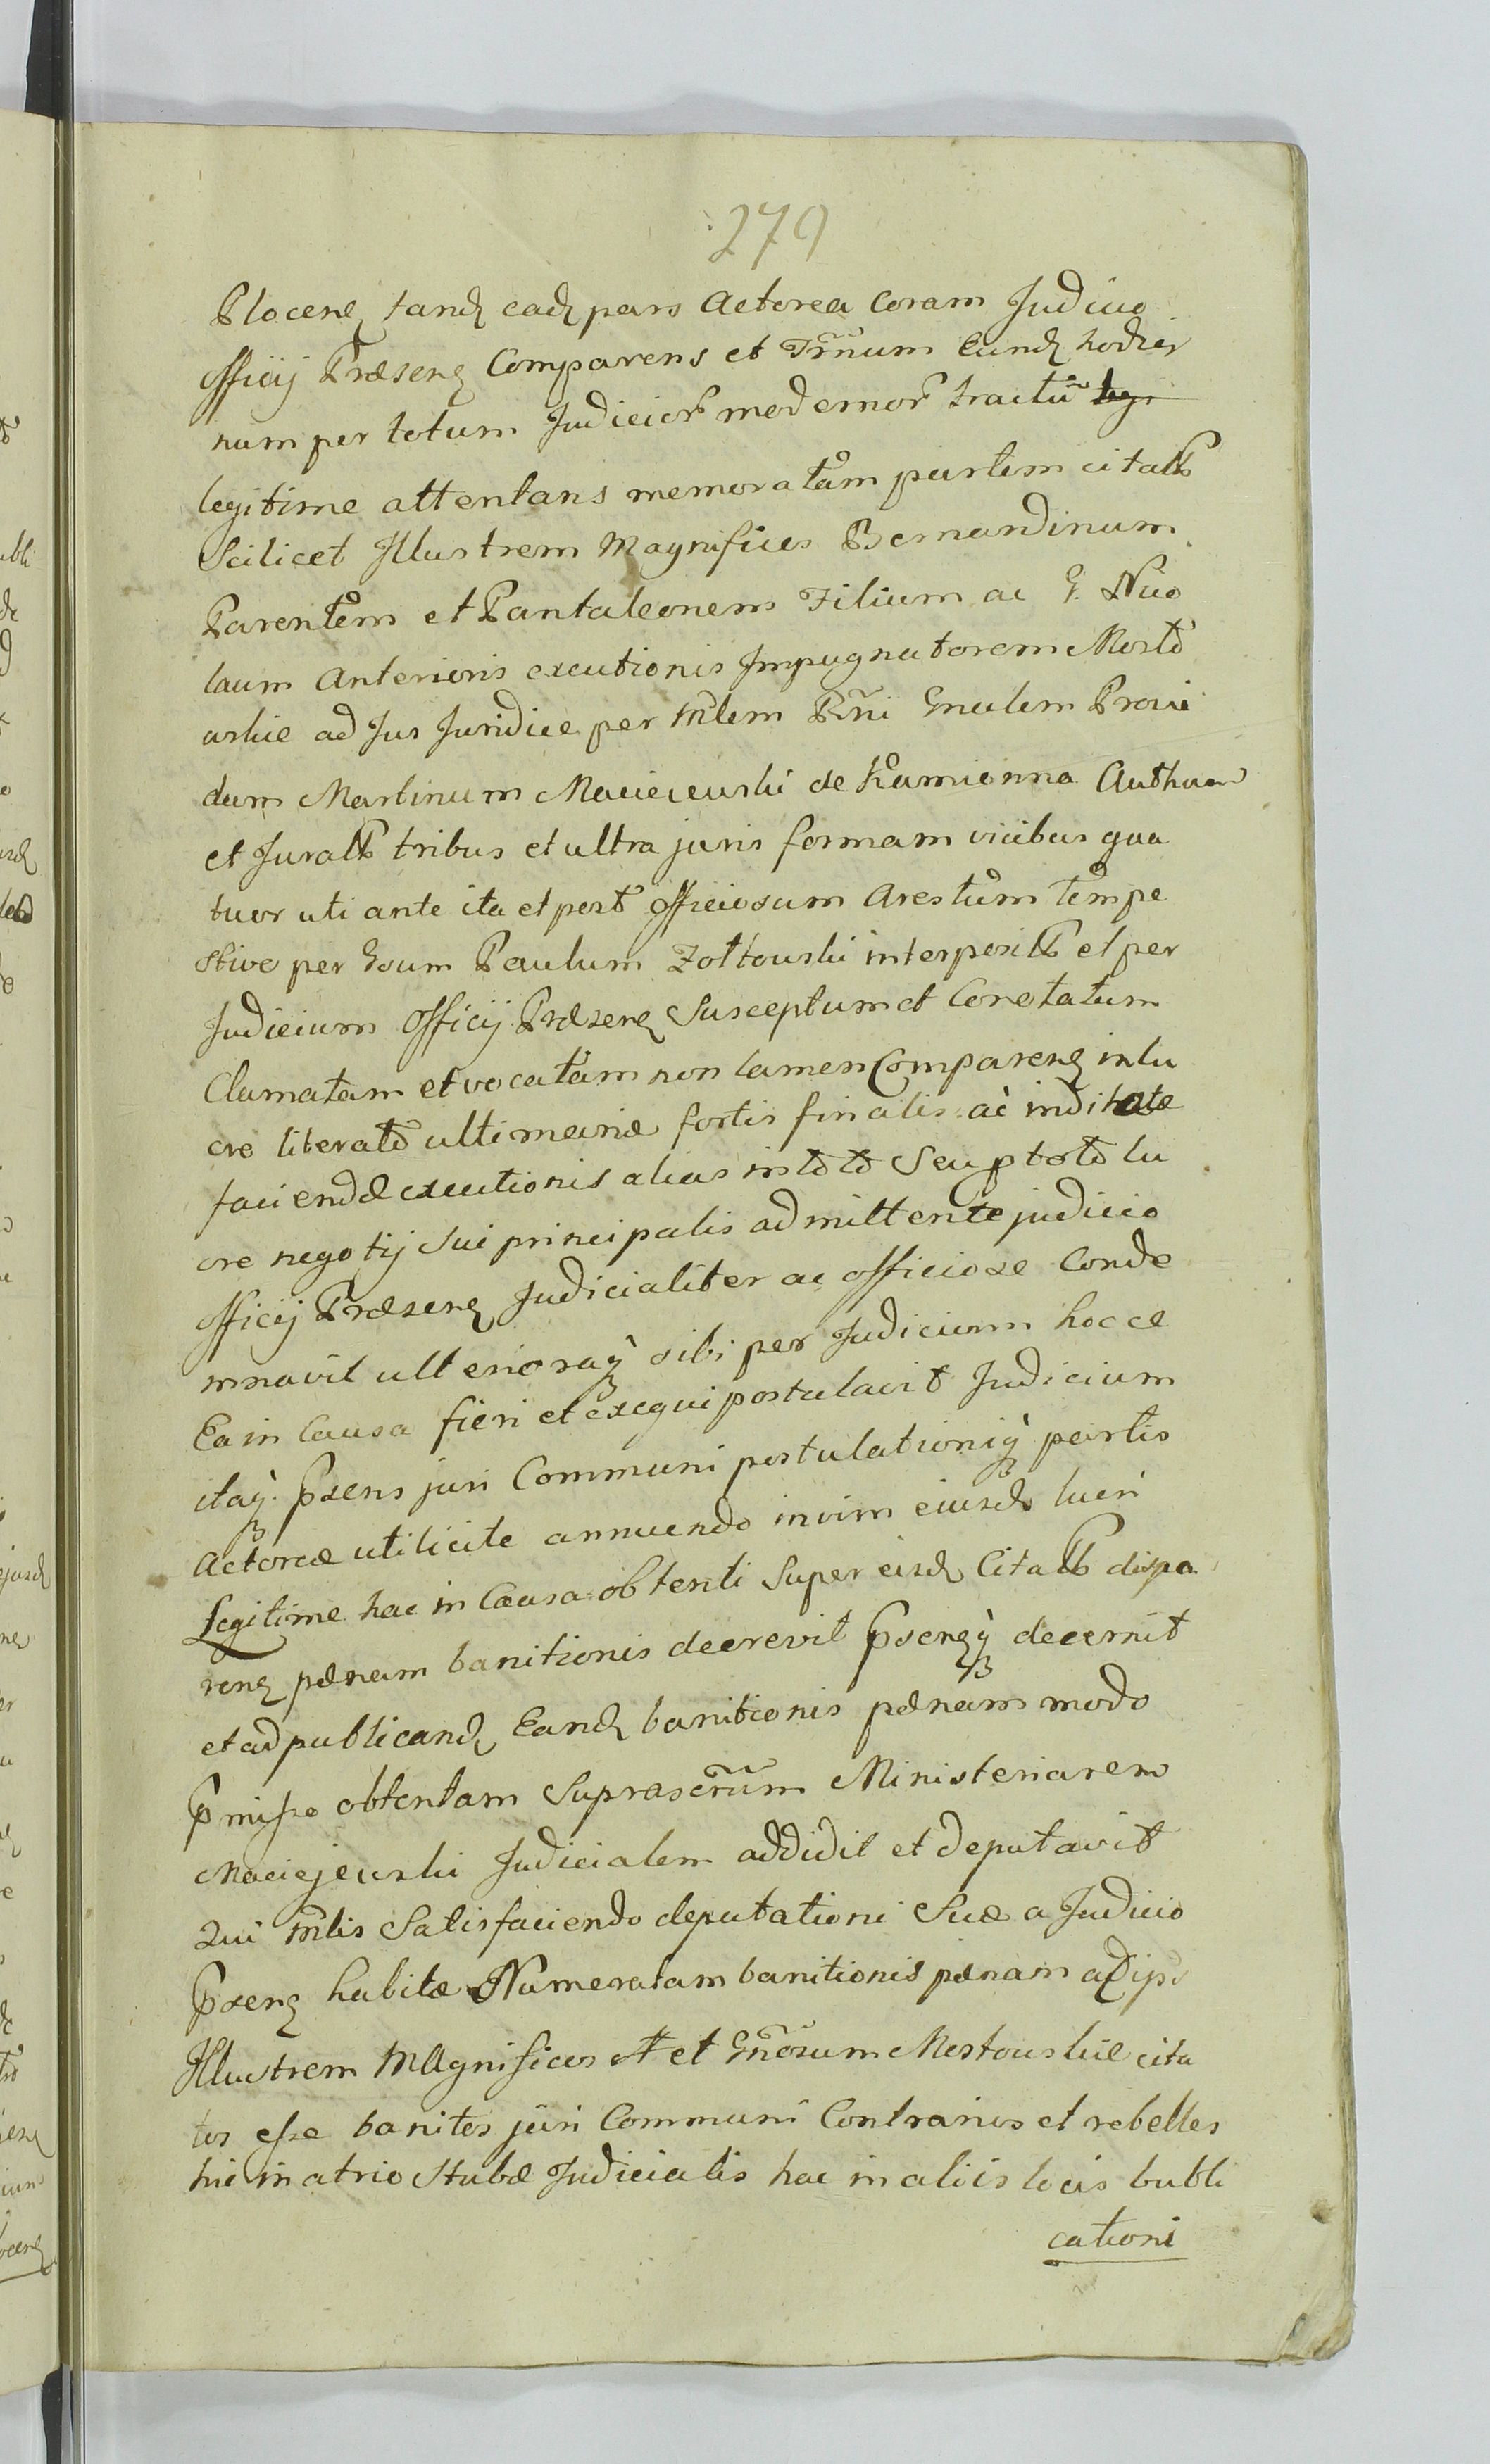 279
Plocen tand ead pars Actorea Coram Judicio
officij Præsen Comparens et Trñum Eund hodier
num per totum Judicior modernor tractũ
legitime attentans memoratam partem citat
Scilicet Illustrem Magnificos Bernardinum
Parentem et Pantaleonem Filium ac G. Nico
laum Anterioris executionis Impugnatorem Mosto
wskie ad Jus Juridice per Mlem Rñi Gnalem Provi
dum Martinum Maciejewski de Kamionna Authen
et Jurat tribus et ultra juris formam vicibus qua
tuor uti ante ita et post officiosum Arestum tempe
stive per Gsum Paulum Zołtowski interposit et per
Judicium Officij Præsen Susceptum et Conotatum
Clamatam et vocatam non tamen Comparen in lu
cro literato ultimariæ fortis finalis ac indilatæ
faciendæ executionis alias in toto Seu p toto lu
cro negotij Sui principalis admittente judicio
officij Præsen Judicialiter ac officiose Conde
mnavit ulterioraq sibi per Judicium hocce
Ea in Causa fieri et exequi postulavit Judicium
itaq Pxens juri Communi postulationiq partis
Actoreæ utilicite annuendo in vim eiusd lucri
Legitime hac in Causa obtenti Super eisd Citat dispa
ren pænam banitionis decrevit Psenq decernit
et ad publicand Eand banitionis pænam modo
Pmisso obtentam Suprascrũm Ministerialem
Maciejewski Judicialem addidit et deputavit
Qui Mlis Satisfaciendo deputationi Suæ a Judicio
Psen habitæ Numeratam banitionis pænam
Illustrem MAgnificos et Gnõsum Mostowskie cita
tos esse banitos juri Communi Contrarios et rebelles
hic in atrio Stubæ Judicialis hac in aliis locis bubli
cationi